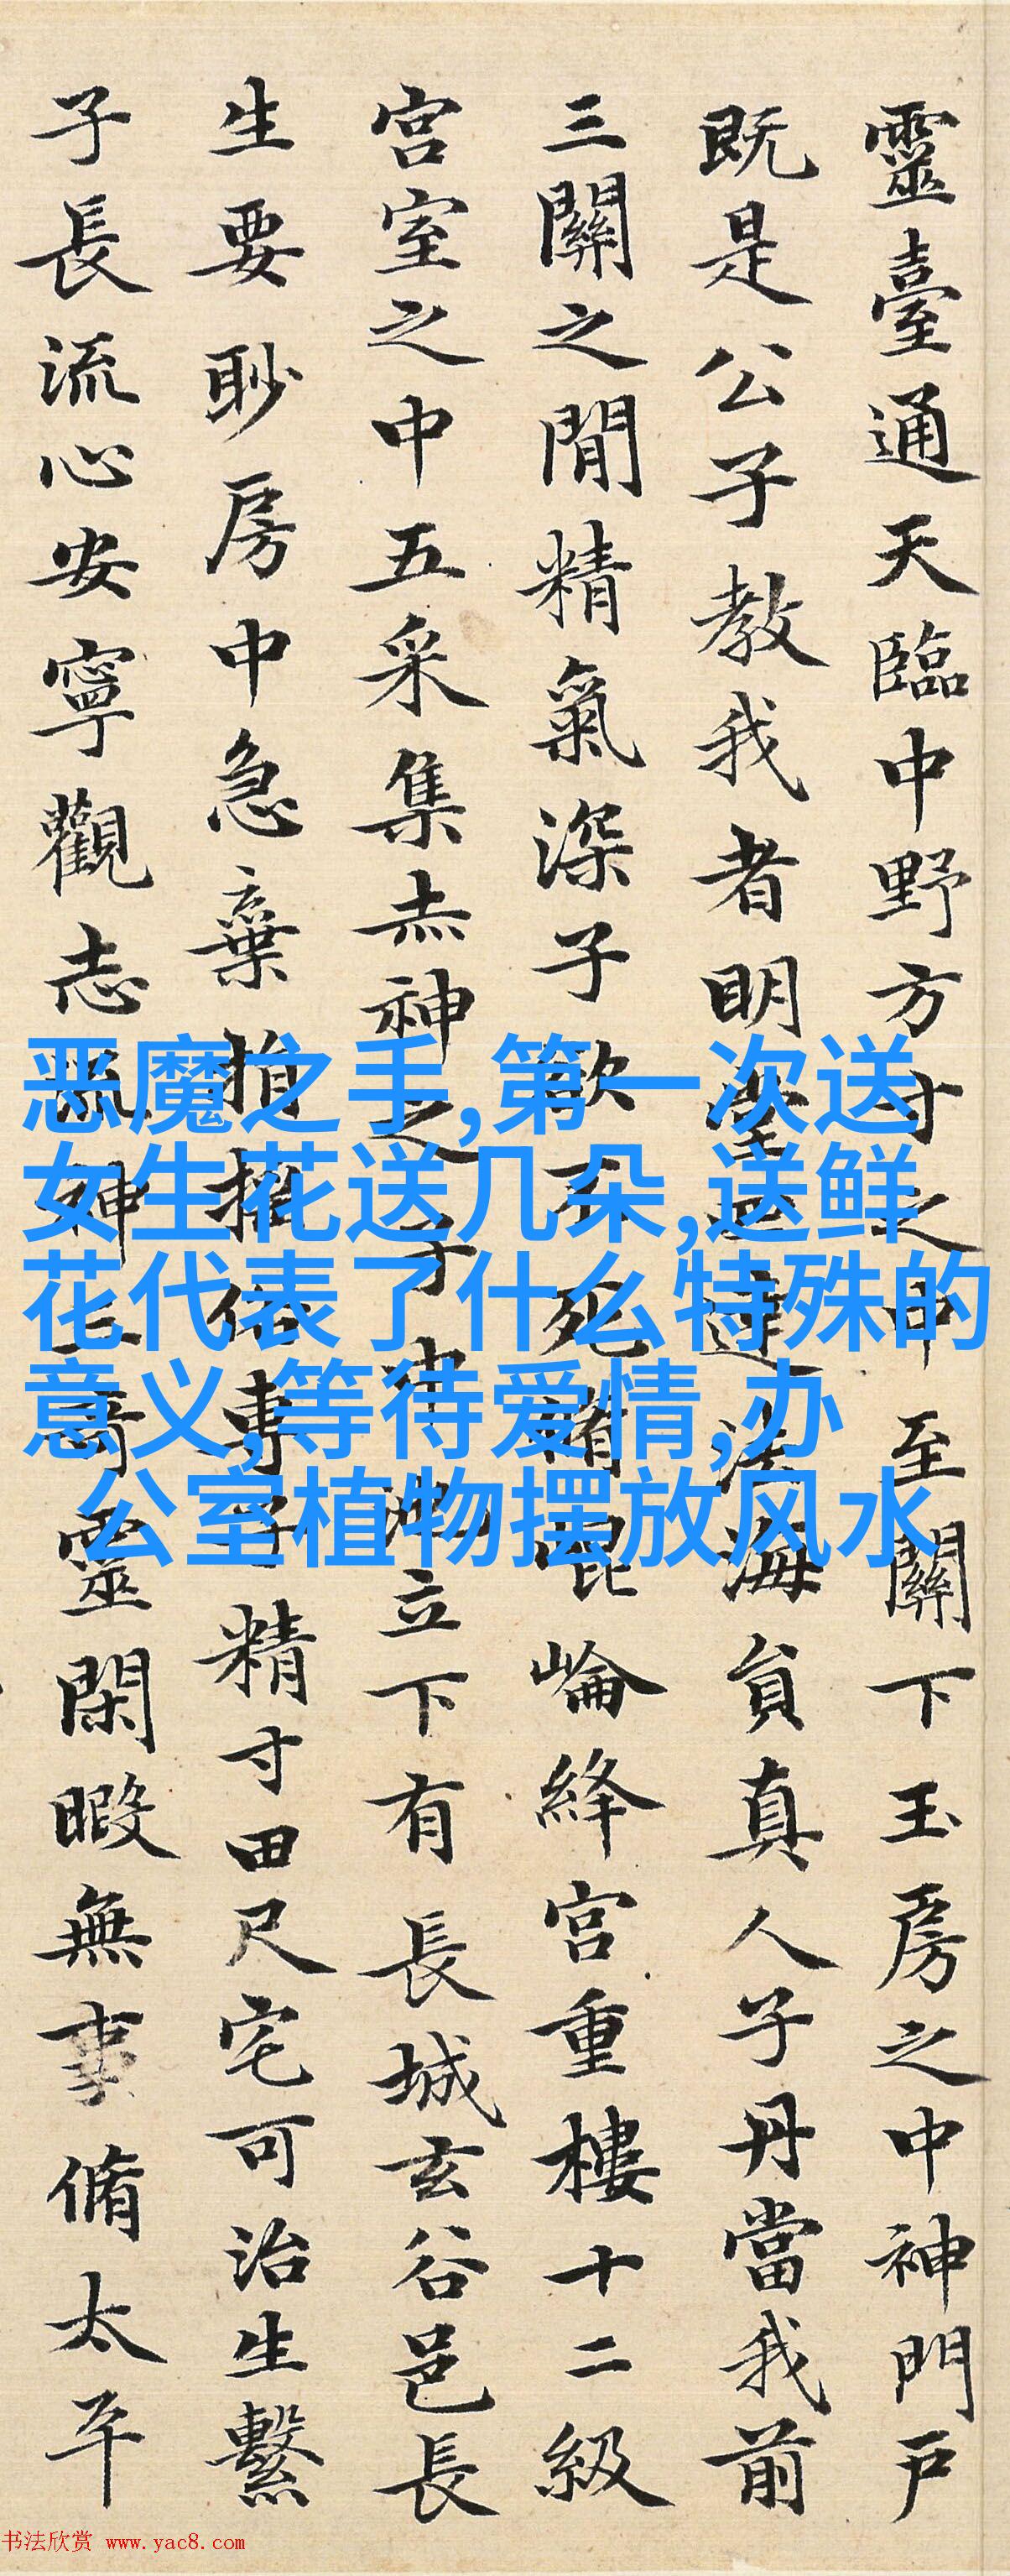 靈臺通天臨中野方寸之中至關下玉房之中神門戶
既是公子教我者明堂四達法海負真人子丹當我前
三關之閒精氣深子欲不死脩崑崙絳宮重樓十二級
宮室之中五采集赤神之子中池立下有長城玄谷邑長
生要眇房中急棄捐搖俗專子精寸田尺宅可治生繫
子長流心安寧觀志流神三奇靈閑暇無事脩太平
恶魔之手,第一次送
女生花送几朵,送鲜
花代表了什么特殊的
意义,等待爱情,办
公室植物摆放风水
书法欣赏 www.yac8.com